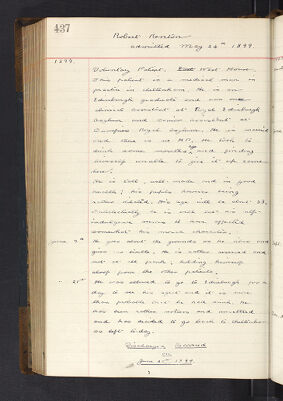 437
Robert
admitted May 26th 1899.
1899.
Voluntary Patient. West House.
This patient is a medical man in
practice in Cheltenham. He is an
Edinburgh graduate and was
clinical assistant at Royal Edinburgh
Asylum and Senior assistant at
Royal Asylum. He is married
and there is no He took to
drink some ago, and finding
himself unable to give it up came
here.
He is tall, well-made and in good
health; his pupils however being
rather dilated. His age will be about
Intellectually he is and his self-
indulgence seems to have affected
somewhat his moral character.
June 9th He goes about the grounds as he likes and
gives no trouble. He is rather reserved and
not at all frank, holding himself
aloof from the other patients.
" 21st He was allowed to go to Edinburgh for a
day to see his and it is more
than probable that he had much. He
has been rather restless and unsettled
and has decided to go back to Cheltenham
so left today.
Discharged Relieved
June 21st 1899.